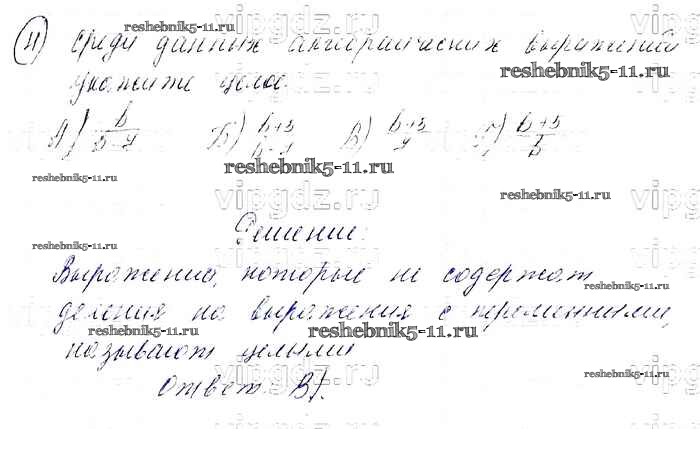 11) Среди данных алгебраических выражений
укажите целое.
А) b Б) b+3 В) b+3 Г) b+3
b
Решение:
Выражения, которые не содержат
деления на выражения с переменными,
называют целыми
Ответ В).
reshebnik5-11.ru
reshebnik5-11.ru
reshebnik5-11.ru
reshebnik5-11.ru
reshebnik5-11.ru
reshebnik5-11.ru
reshebnik5-11.ru
reshebnik5-11.ru
reshebnik5-11.ru
vipgdz.ru
vipgdz.ru
vipgdz.ru
vipgdz.ru
vipgdz.ru
vipgdz.ru